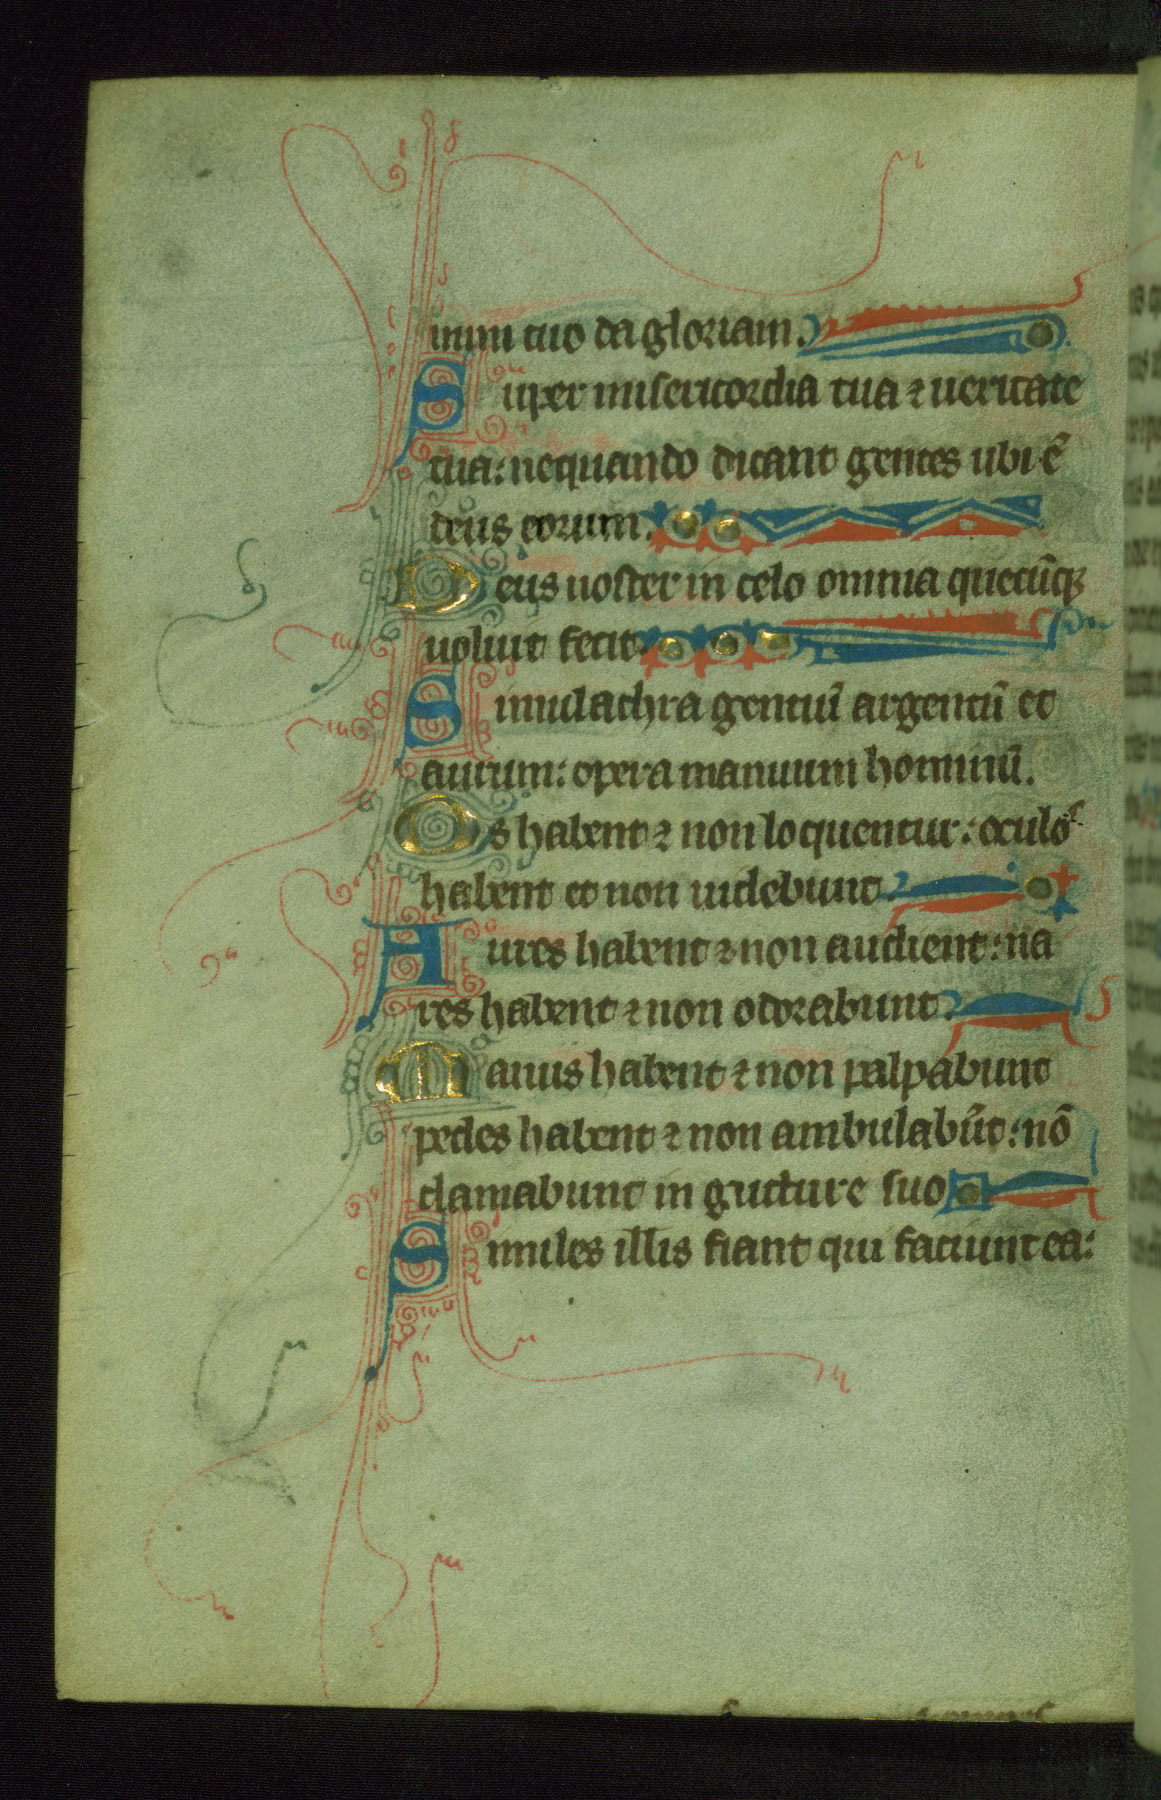 mini tuo da gloriam.
Super misericordia tua ⁊ ueritate
tua: nequando dicant gentes ubi ē
deus eorum.
Deus noster in celo omnia quecūqꝫ
uoluit fecit.
Simulachra gentiū argentū et
aurum: opera manuum hominū.
Os habent ⁊ non loquentur: oculos
habent et non uidebunt.
Aures habent ⁊ non audient: na
res habent ⁊ non odorabunt.
Manus habent ⁊ non palpabunt
pedes habent ⁊ non ambulabūt: nō
clamabunt in gutture suo
Similes illis fiant qui faciunt ea: